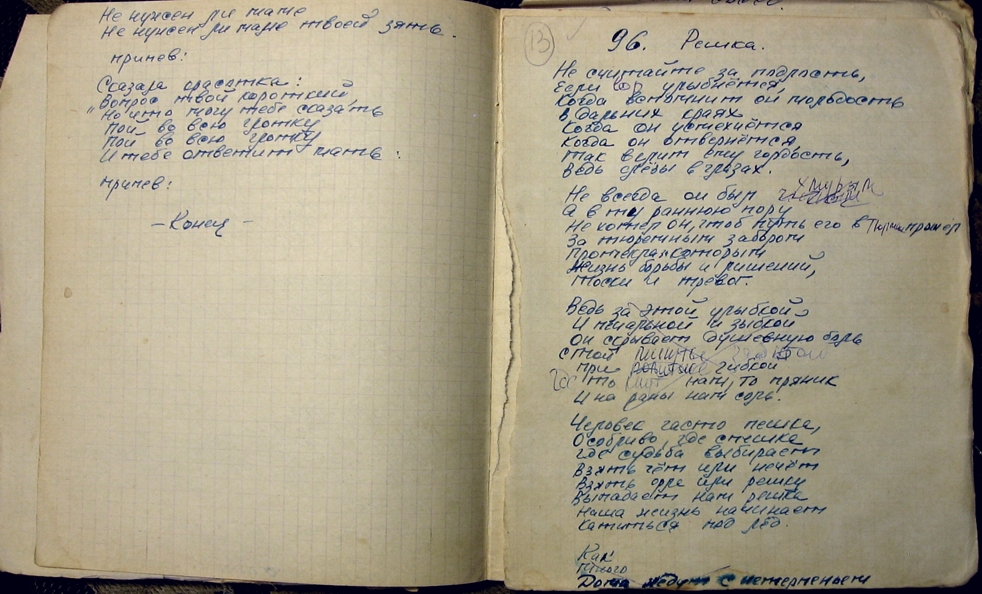 Не нужен ли маме
Не нужен ли маме твоей зять.
припев:
Сказала красотка:
"Вопрос твой короткий
Но что могу тебе сказать
Пой во всю глотку
Пой во всю глотку
И тебе ответит мать:
припев:
- Конец -
13
96. Решка.
Не считайте за подлость,
Если он улыбнётся,
Когда вспомнит он молодость
В дальних краях
Когда он усмехнётся
Когда он отвернётся
Так велит ему гордость,
Ведь слёзы в глазах.
Не всегда он был хмурым
А в ту раннюю пору
Не хотел он, чтоб путь его в
За тюремным забором
Протекал которым
Жизнь борьбы и лишений,
Тоски и тревог.
Ведь за этой улыбкой
И печальной и зыбкой
Он скрывает душевную боль
С той
При гибкой
Где то нам, то пряник
И на раны нам соль.
Человек часто пешка,
Особливо, где спешка
Где судьба выбирает
Взять чёт или нечёт
Взять орла или решку
Выпадает нам решка
Наша жизнь начинает
Катиться под лёд.
Как
много
Дома ждут с нетерпеньем